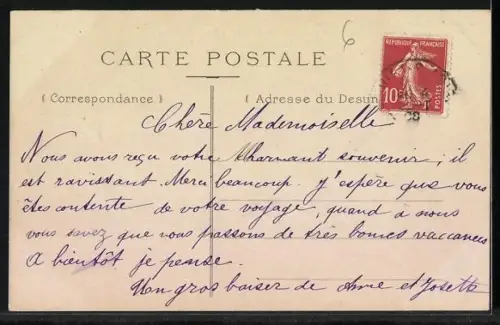 6
CARTE POSTALE
RÉPUBLIQUE FRANÇAISE
10
POSTES
( Correspondance )
( Adresse du Destin
Chère Mademoiselle
Nous avons reçu votre charmant souvenir; il
est ravissant. Merci beaucoup. J'espère que vous
êtes contente de votre voyage, quand à nous
vous savez que nous passons de très bonnes vaccances
A bientôt je pense.
Un gros baiser de et Josette